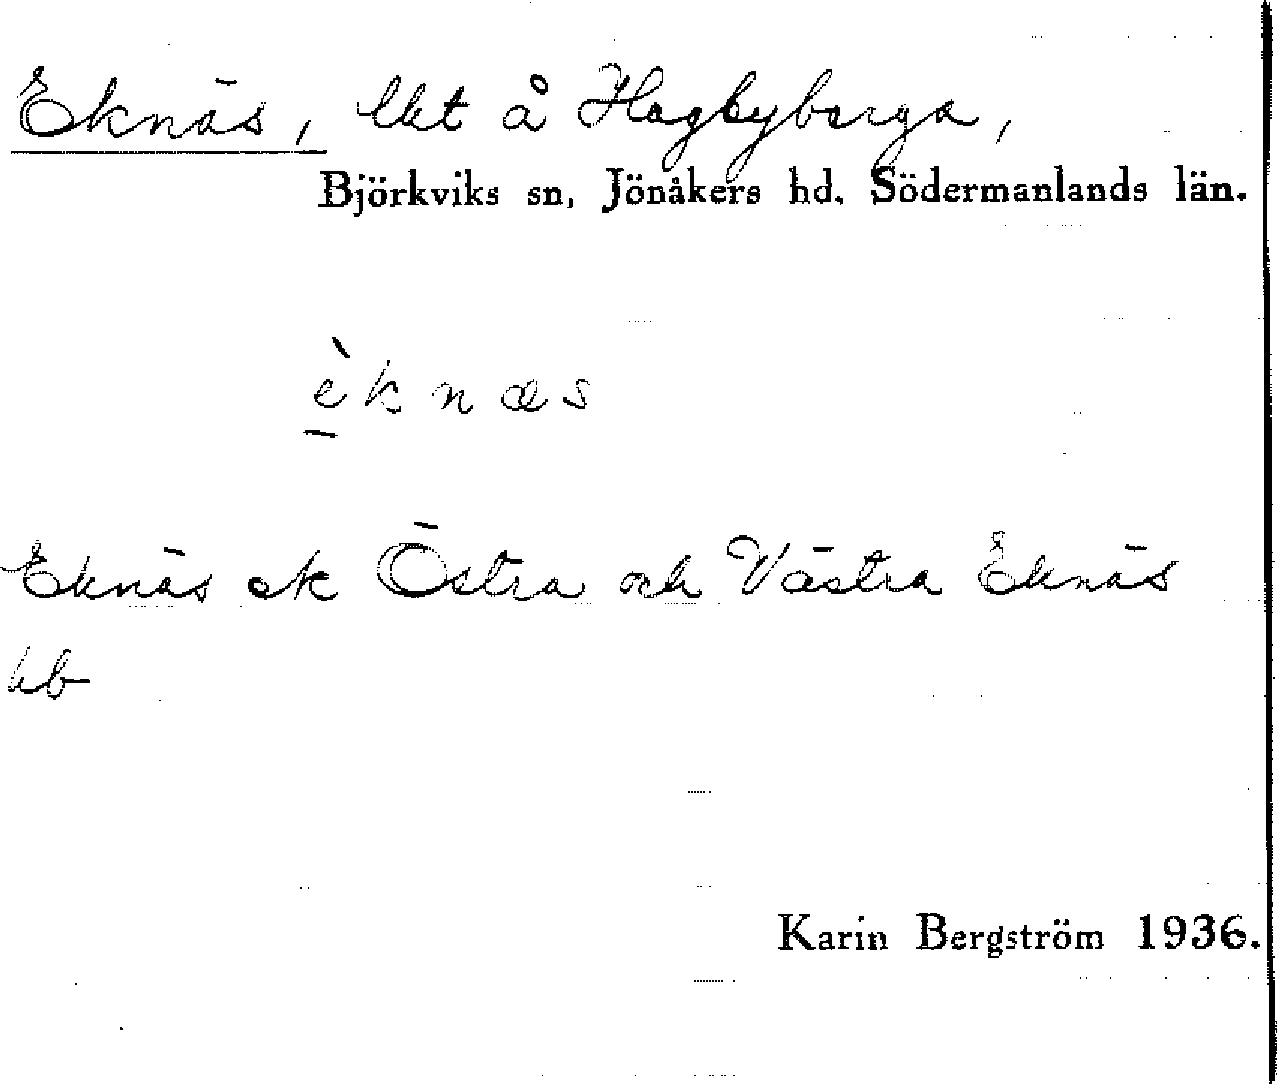 Eknäs, lht å Hagbyberga,
Björkviks sn, Jönåkers hd, Södermanlands län.
èknæs
Eknäs ek Östra och Västra Eknäs
hb
Karin Bergström 1936.